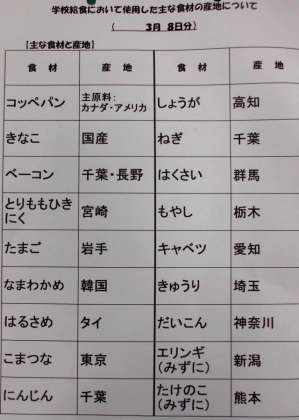 学校給食において使用した主な食材の産地について
( 3月 8日分)
【主な食材と産地】
食 材 産 地 食 材 産 地
コッペパン 主原料:
カナダ・アメリカ しょうが 高知
きなこ 国産 ねぎ 千葉
ベーコン 千葉・長野 はくさい 群馬
とりももひき
にく 宮崎 もやし 栃木
たまご 岩手 キャベツ 愛知
なまわかめ 韓国 きゅうり 埼玉
はるさめ タイ だいこん 神奈川
こまつな 東京 エリンギ
(みずに) 新潟
にんじん 千葉 たけのこ
(みずに) 熊本